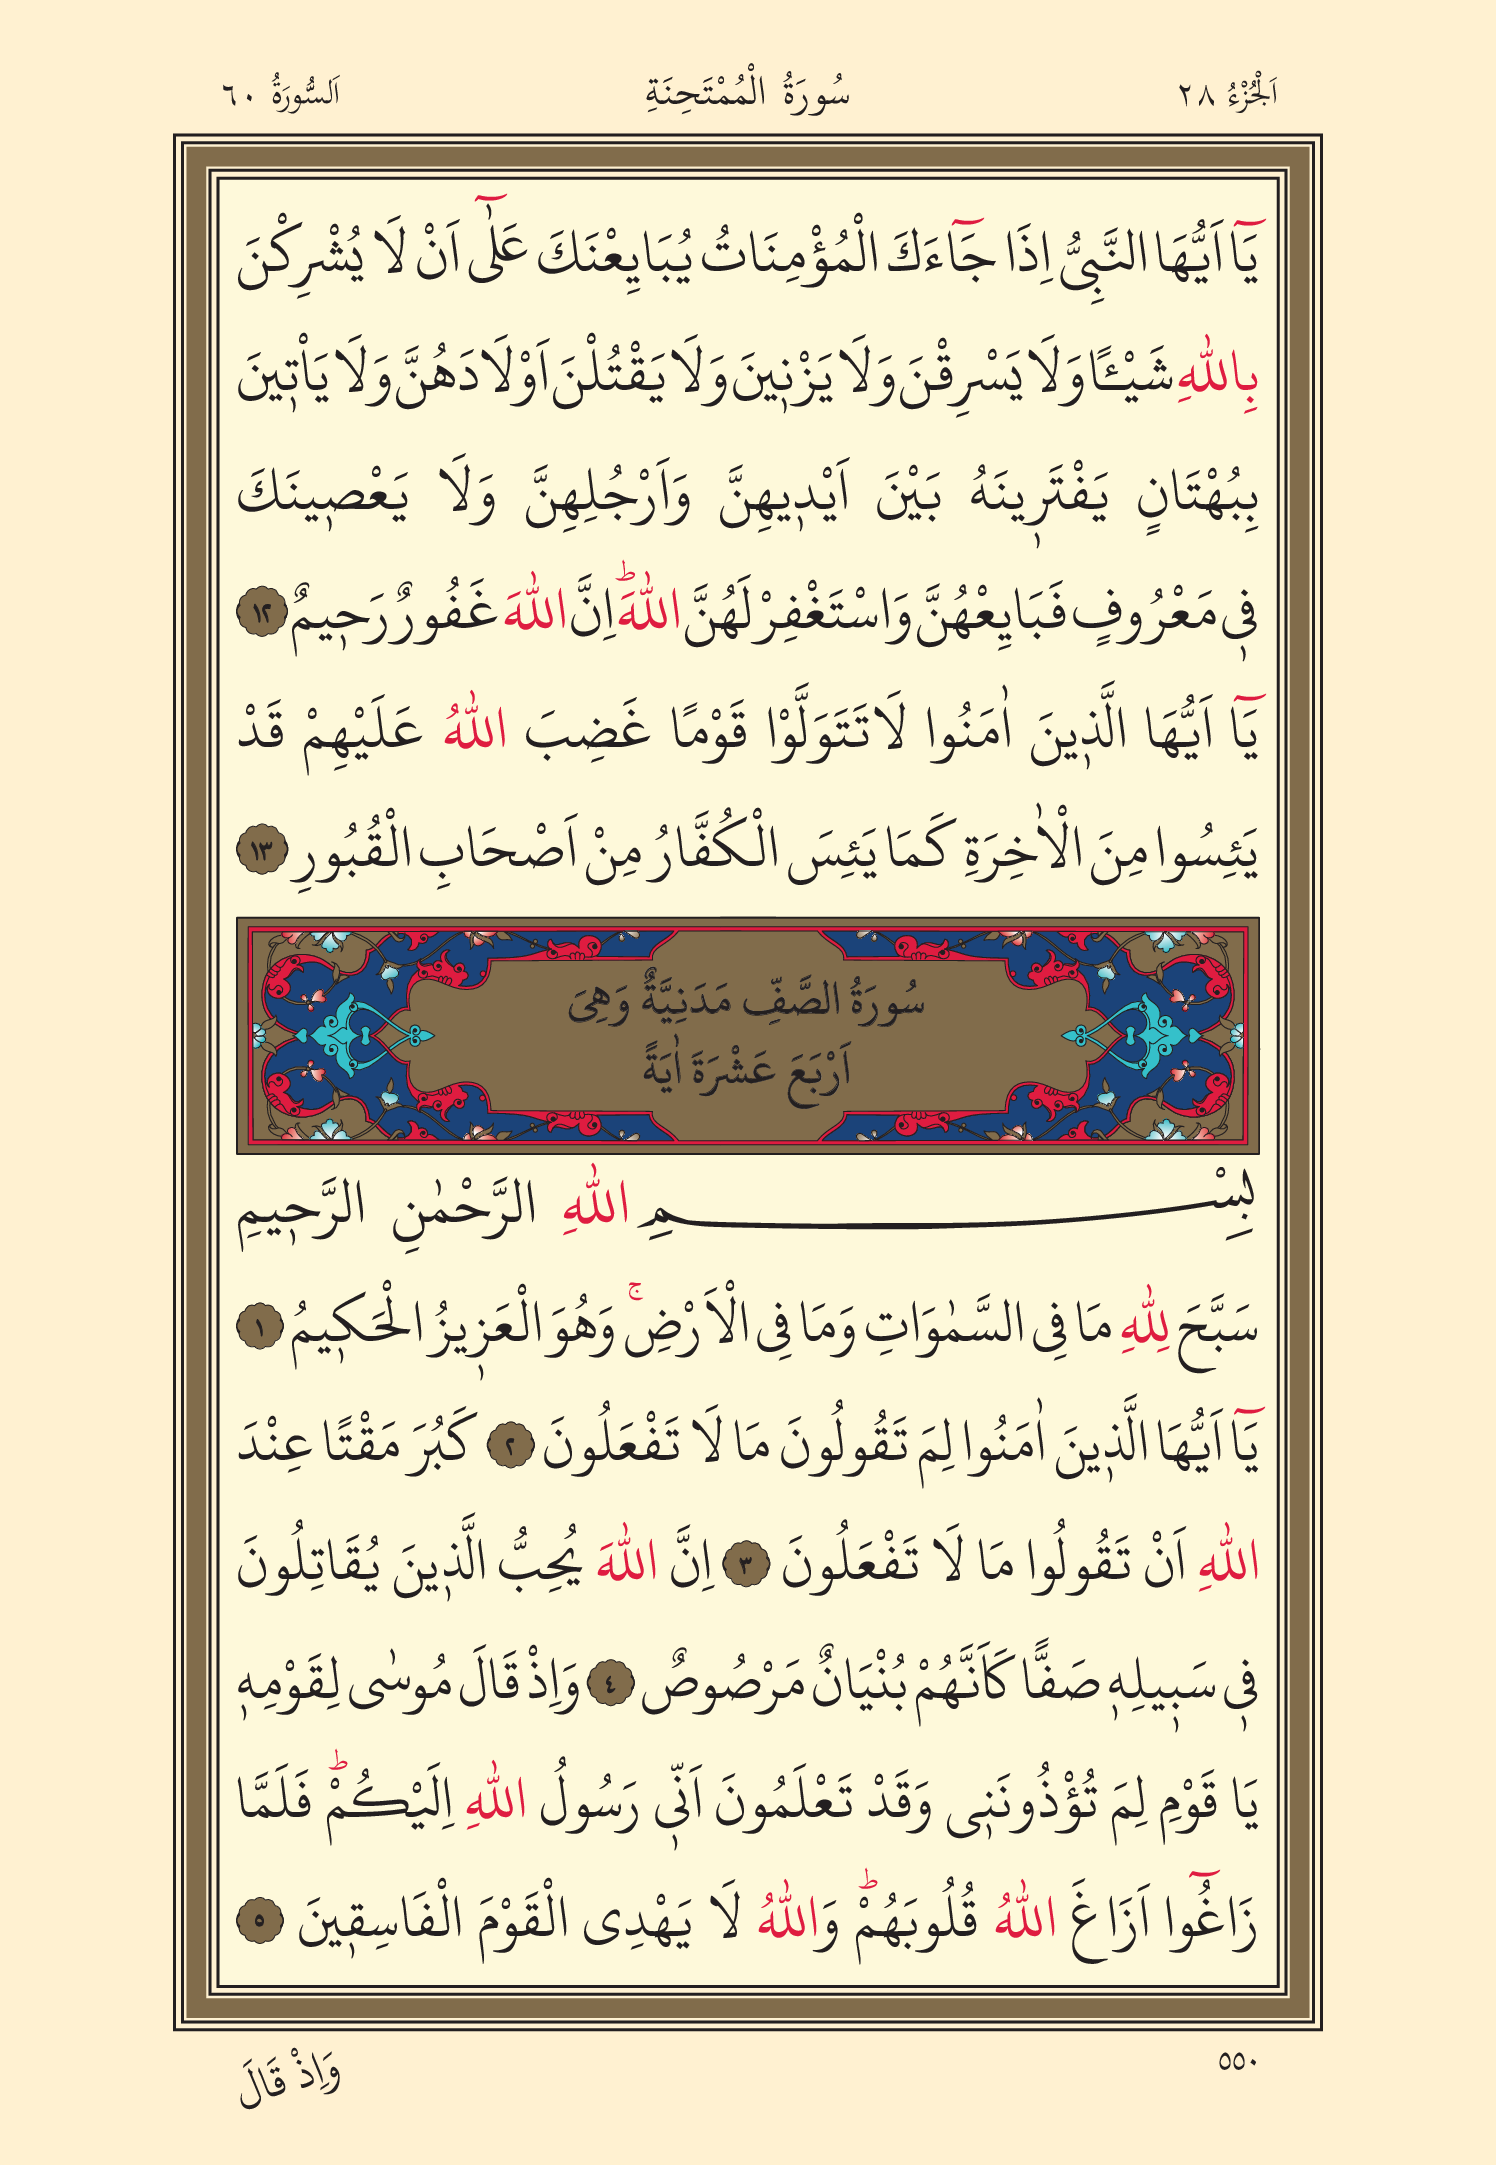 اَلْجُزْءُ ٢٨
سُورَةُ الْمُمْتَحِنَةِ
اَلسُّورَةُ ٦٠
يَٓا اَيُّهَا النَّبِىُّ اِذَا جَٓاءَكَ الْمُؤْمِنَاتُ يُبَايِعْنَكَ عَلٰٓى اَنْ لَا يُشْرِكْنَ
بِاللّٰهِ شَيْـًٔا وَلَا يَسْرِقْنَ وَلَا يَزْن۪ينَ وَلَا يَقْتُلْنَ اَوْلَادَهُنَّ وَلَا يَأْت۪ينَ
بِبُهْتَانٍ يَفْتَر۪ينَهُ بَيْنَ اَيْد۪يهِنَّ وَاَرْجُلِهِنَّ وَلَا يَعْص۪ينَكَ
ف۪ى مَعْرُوفٍ فَبَايِعْهُنَّ وَاسْتَغْفِرْ لَهُنَّ اللّٰهَؕ اِنَّ اللّٰهَ غَفُورٌ رَح۪يمٌ ١٢
يَٓا اَيُّهَا الَّذ۪ينَ اٰمَنُوا لَا تَتَوَلَّوْا قَوْمًا غَضِبَ اللّٰهُ عَلَيْهِمْ قَدْ
يَئِسُوا مِنَ الْاٰخِرَةِ كَمَا يَئِسَ الْكُفَّارُ مِنْ اَصْحَابِ الْقُبُورِ ١٣
سُورَةُ الصَّفِّ مَدَنِيَّةٌ وَهِىَ
اَرْبَعَ عَشْرَةَ اٰيَةً
بِسْمِ اللّٰهِ الرَّحْمٰنِ الرَّح۪يمِ
سَبَّحَ لِلّٰهِ مَا فِى السَّمٰوَاتِ وَمَا فِى الْاَرْضِۚ وَهُوَ الْعَز۪يزُ الْحَك۪يمُ ١
يَٓا اَيُّهَا الَّذ۪ينَ اٰمَنُوا لِمَ تَقُولُونَ مَا لَا تَفْعَلُونَ ٢ كَبُرَ مَقْتًا عِنْدَ
اللّٰهِ اَنْ تَقُولُوا مَا لَا تَفْعَلُونَ ٣ اِنَّ اللّٰهَ يُحِبُّ الَّذ۪ينَ يُقَاتِلُونَ
ف۪ى سَب۪يلِه۪ صَفًّا كَاَنَّهُمْ بُنْيَانٌ مَرْصُوصٌ ٤ وَاِذْ قَالَ مُوسٰى لِقَوْمِه۪
يَا قَوْمِ لِمَ تُؤْذُونَن۪ى وَقَدْ تَعْلَمُونَ اَنّ۪ى رَسُولُ اللّٰهِ اِلَيْكُمْؕ فَلَمَّا
زَاغُٓوا اَزَاغَ اللّٰهُ قُلُوبَهُمْؕ وَاللّٰهُ لَا يَهْدِى الْقَوْمَ الْفَاسِق۪ينَ ٥
٥٥٠
وَاِذْ قَالَ